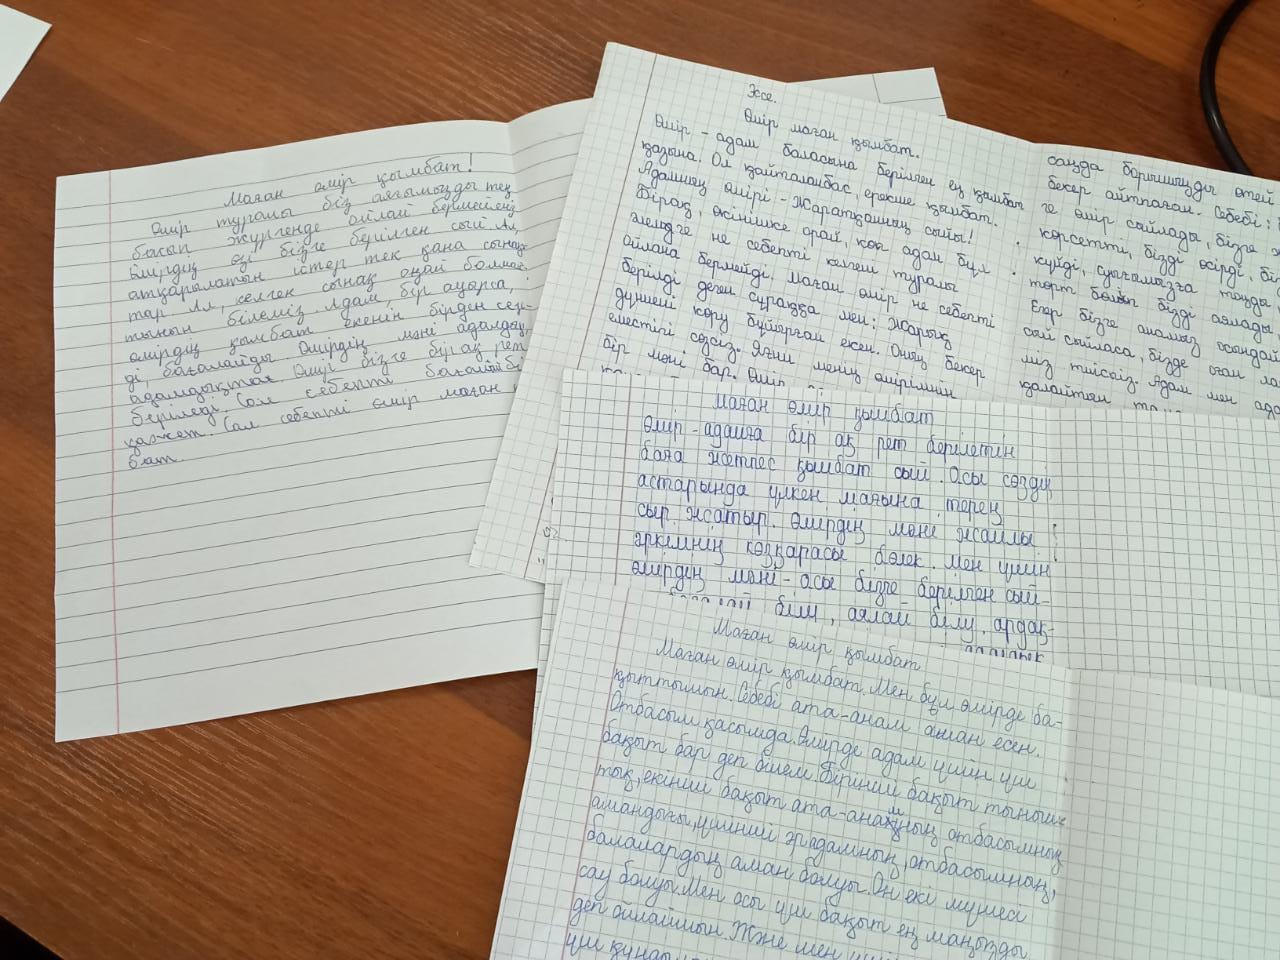 Маған өмір қымбат!
Өмір туралы біз аяғымызды тең
басып жүргенде ойлай бермейміз
Өмірдің өзі бізге берілген сый. Ал,
атқарылатын істер тек қана сынақ-
тар. Ал, келген сынақ оңай болмай-
тынын білеміз. Адам, бір ауырса,
өмірдің қымбат екенін бірден сез-
ді, бағалайды. Өмірдің мәні адалдық,
адамдықта. Өмір бізге бір ақ рет
беріледі. Сол себепті бағалай бі
қажет. Сол себепті өмір маған
бат.
Эссе.
Өмір маған қымбат.
Өмір - адам баласына берілген ең қымбат
қазына. Ол қайталанбас, ерекше қымбат.
Адамның өмірі - Жаратқанның сыйы!
Бірақ, өкінішке орай, көп адам бұл
әлемге не себепті келгені туралы
ойлана бермейді. Маған өмір не себепті
берілді деген сұраққа мен: Жарық
дүниені көру бұйырған екен. Оның бекер
еместігі сөзсіз. Яғни менің өмірімнің
бір мәні бар. Өмір
саңда барышызды өтей
бекер айтпаған. Себебі:
ге өмір сыйлады, бізге
көрсетті, бізді өсірді,
күйді, суығымызға тоңды,
төрт бөліп бізді аялады,
Егер бізге анамыз осындай
сый сыйласа, бізде оған
міз тиіспіз. Адам мен
қалайтын
Маған өмір қымбат
Өмір - адамға бір ақ рет берілетін
баға жетпес қымбат сый. Осы сөздің
астарында үлкен мағына, терең
сыр жатыр. Өмірдің мәні жайлы
әркімнің көзқарасы бөлек. Мен үшін
өмірдің мәні - осы бізге берілген сый-
білу, аялай білу, ардақ-
Маған өмір қымбат.
Маған өмір қымбат. Мен бұл өмірде ба-
қыттымын. Себебі ата-анам аман есен.
Отбасым қасымда. Өмірде адам үшін үш
бақыт бар деп білем. Бірінші бақыт тыныш-
тық, екінші бақыт ата-анамның отбасымның
амандығы, үшінші әр адамның, отбасымның,
балалардың аман болуы. Он екі мүшесі
сау болуы. Мен осы үш бақыт ең маңызды
деп ойлаймын. Және мен үшін
үш құнды